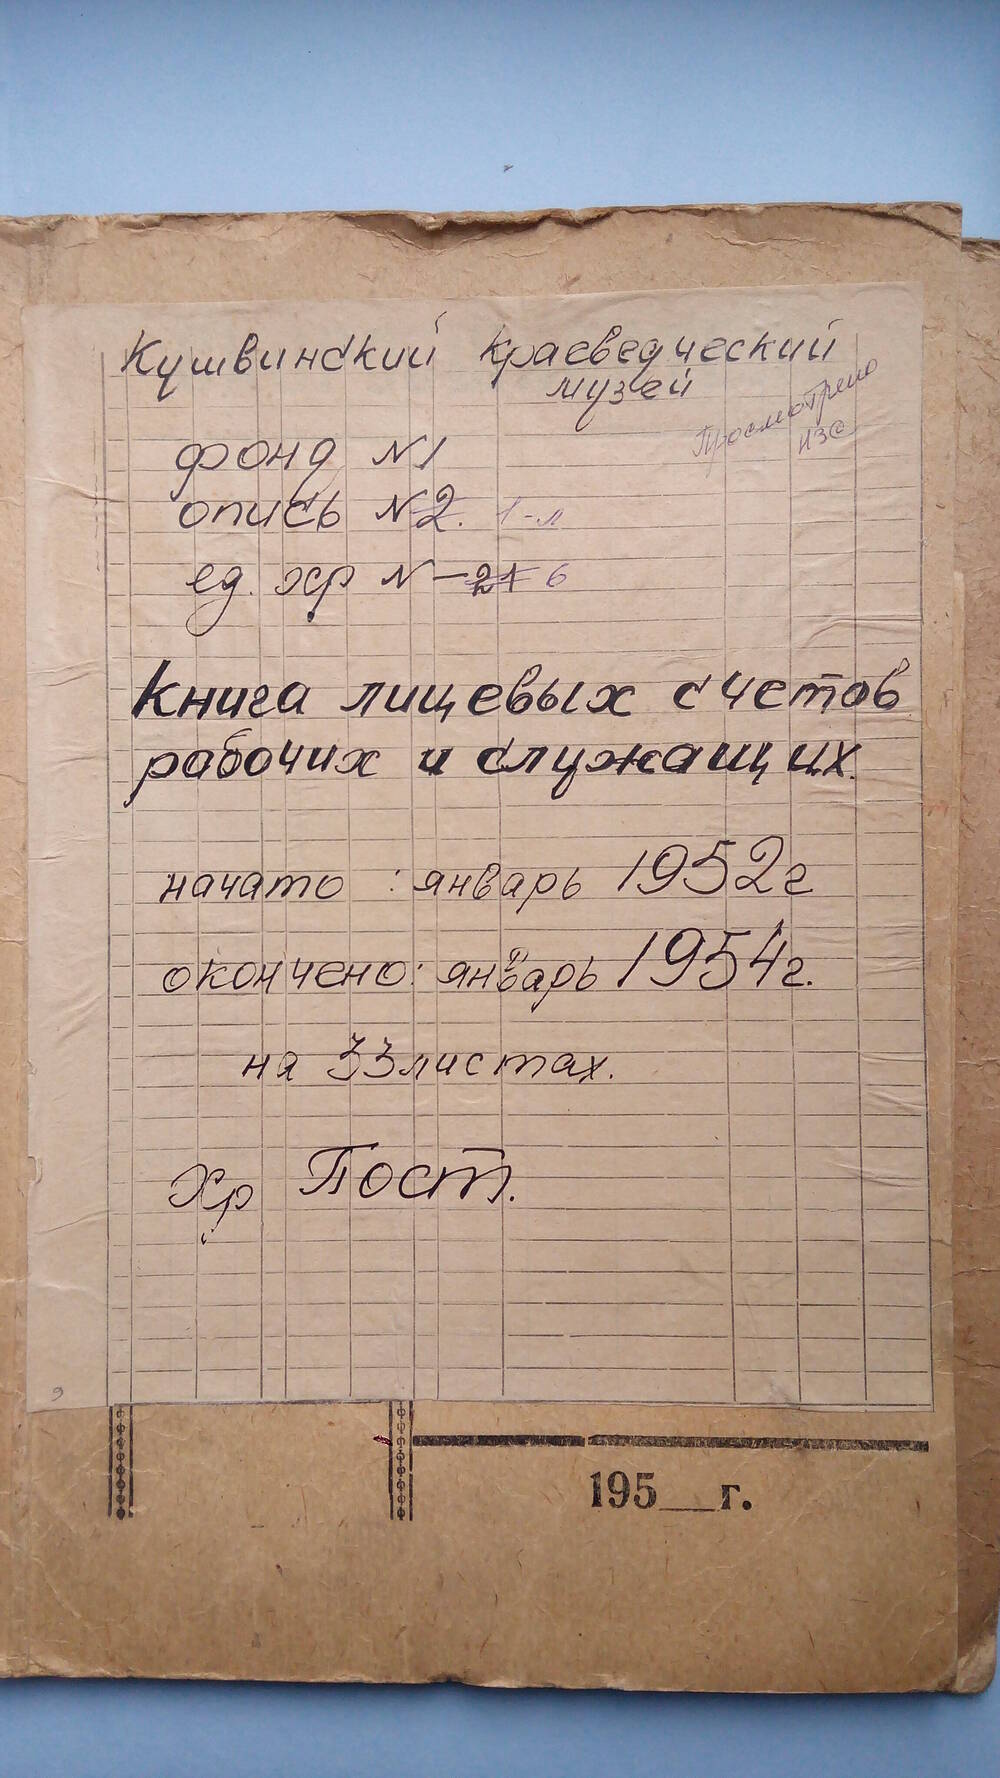 Кушвинский краеведческий
музей
Просмотрено
фонд N1
опись N2. 1-л
ед. хр N-21 6
Книга лицевых счетов
рабочих и служащих.
начато : январь 1952г
окончено: январь 1954г.
на 33 листах.
Хр Пост.
9
195__г.